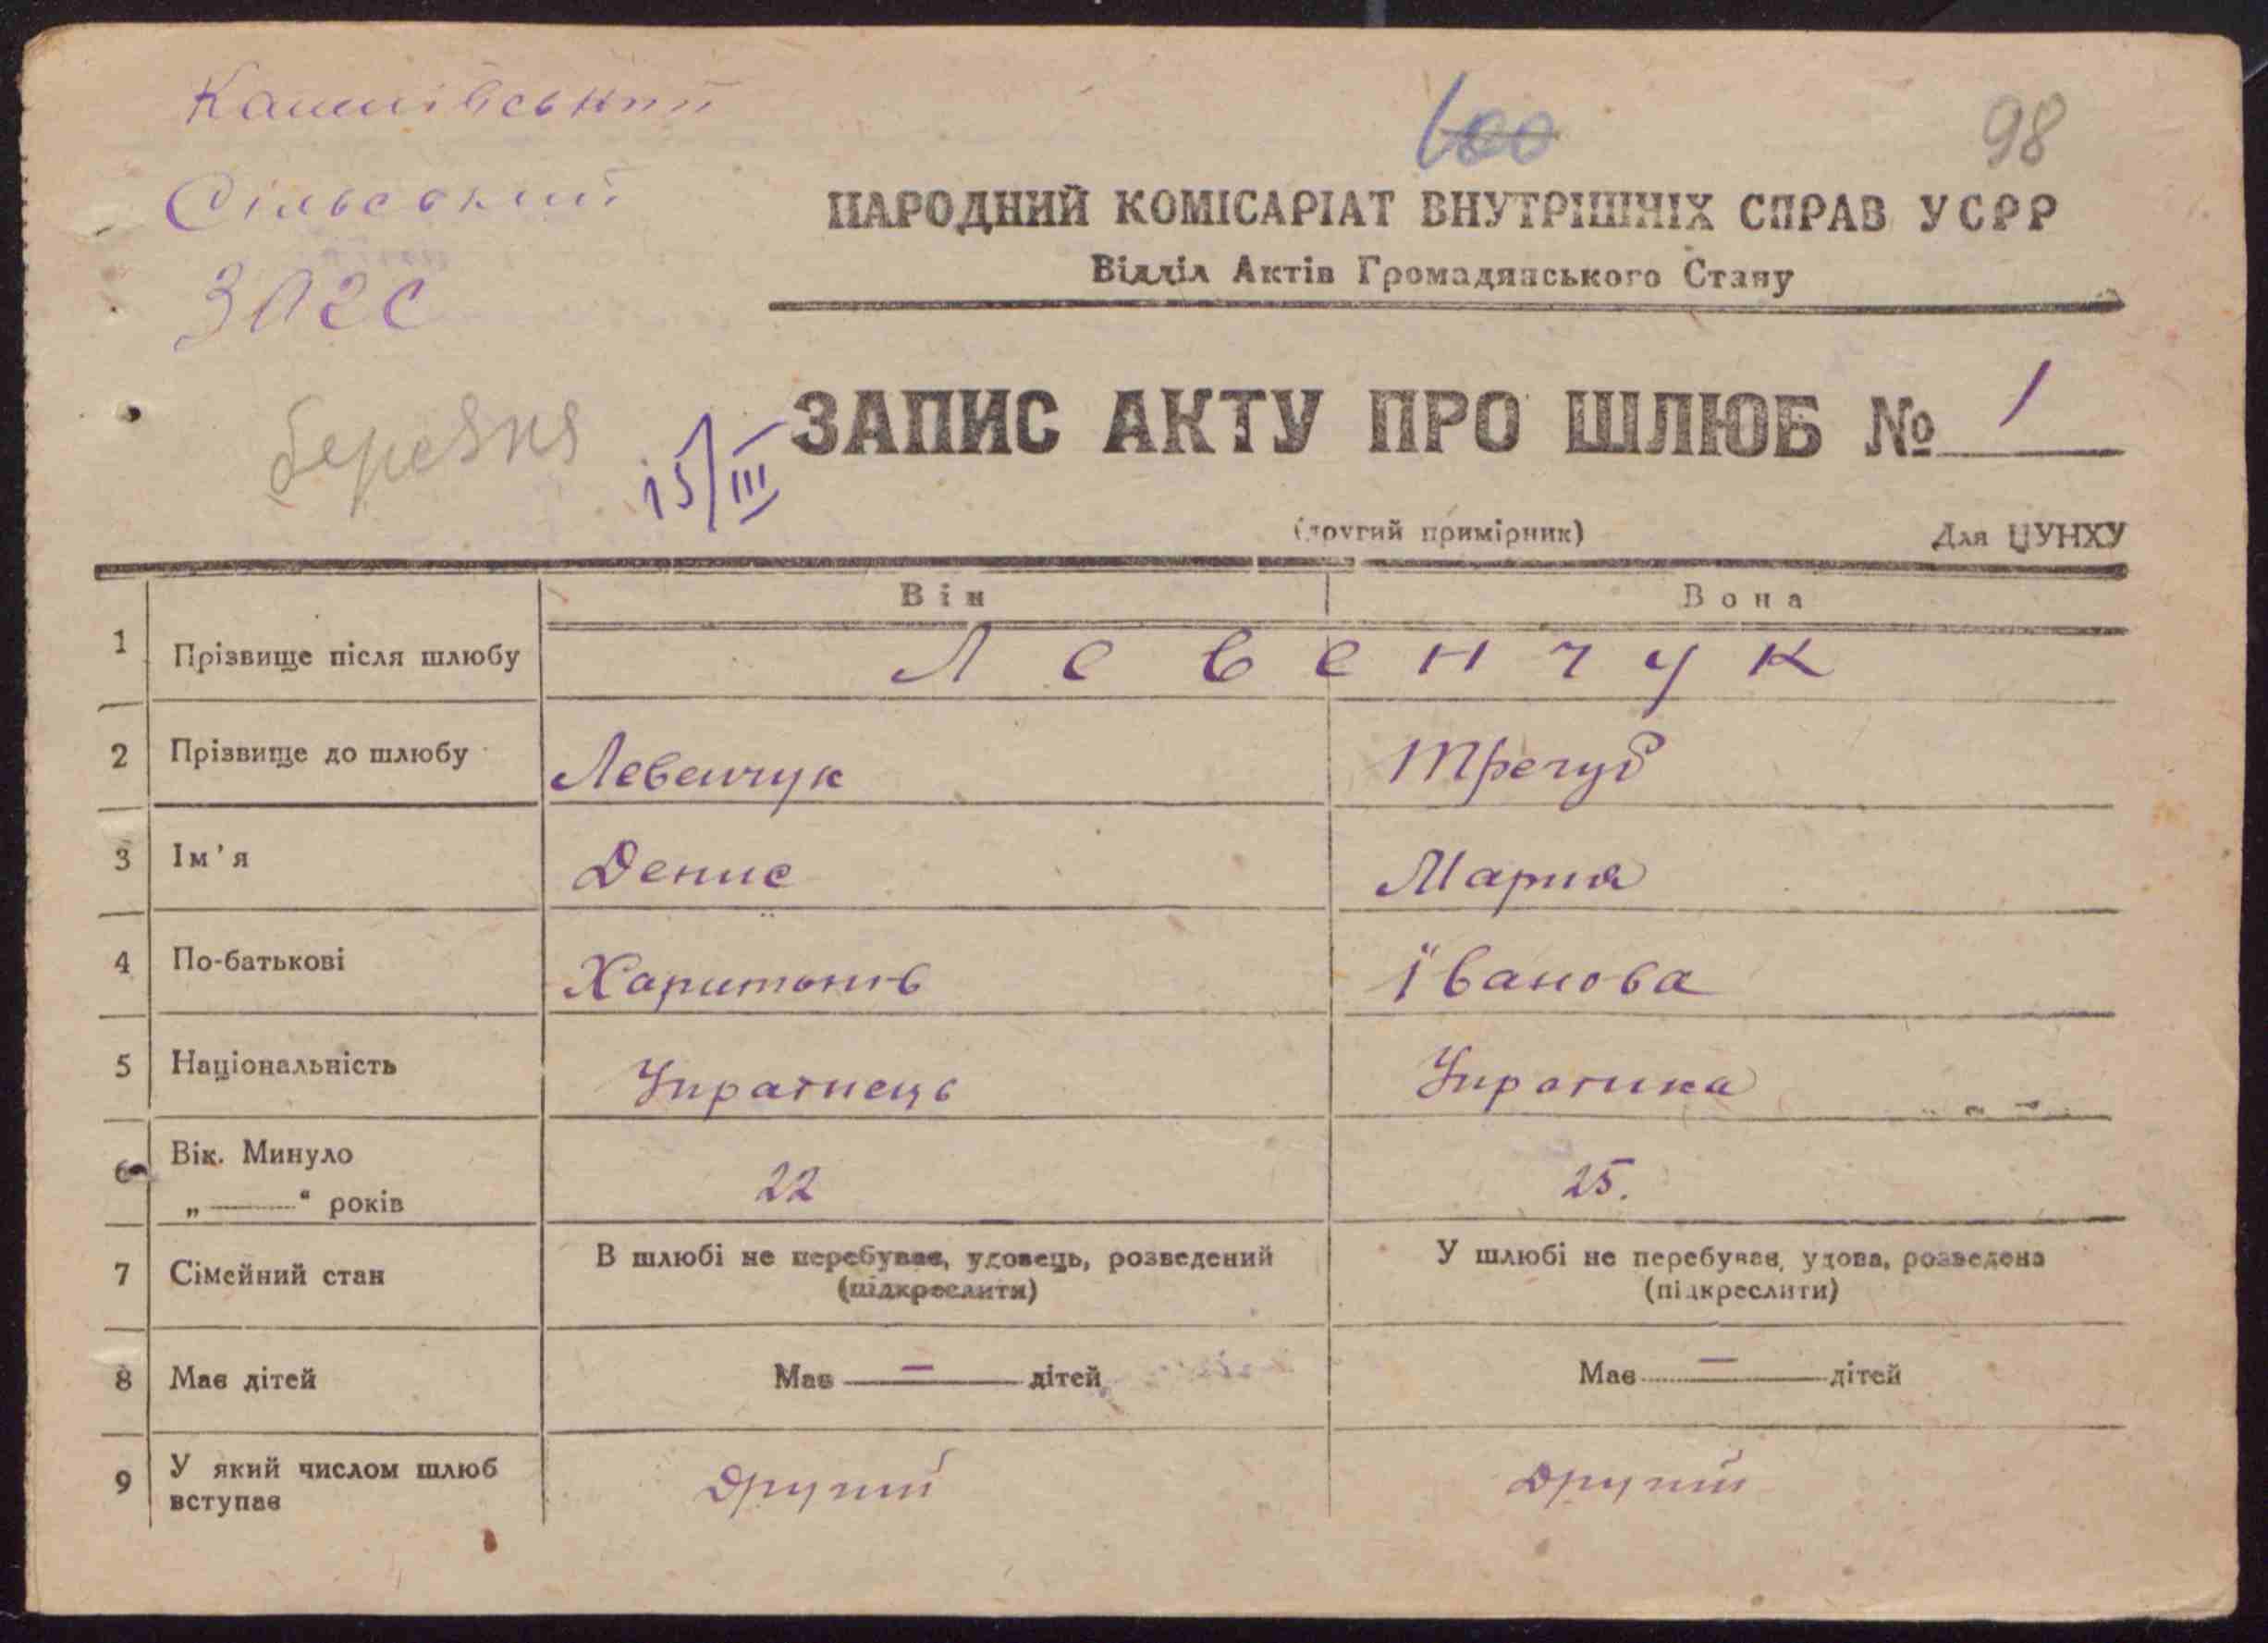 100 98
Сільський
ЗАГС
НАРОДНИЙ КОМІСАРІАТ ВНУТРІШНІХ СПРАВ УСРР
Відділ Актів Громадянського Стану
березня 15/III ЗАПИС АКТУ ПРО ШЛЮБ № 1
(другий примірник) Для ЦУНХУ
Він Вона
1 Прізвище після шлюбу Левенчук
2 Прізвище до шлюбу Левенчук Трегуб
3 Ім'я Денис Мария
4 По-батькові Харитонів Іванова
5 Національність Українець Українка
6 Вік. Минуло
„ ——— “ років 22 25.
7 Сімейний стан В шлюбі не перебуває, удовець, розведений У шлюбі не перебуває, удова, розведена
(підкреслити) (підкреслити)
8 Має дітей Має — дітей Має — дітей
9 У який числом шлюб
вступає другий другий